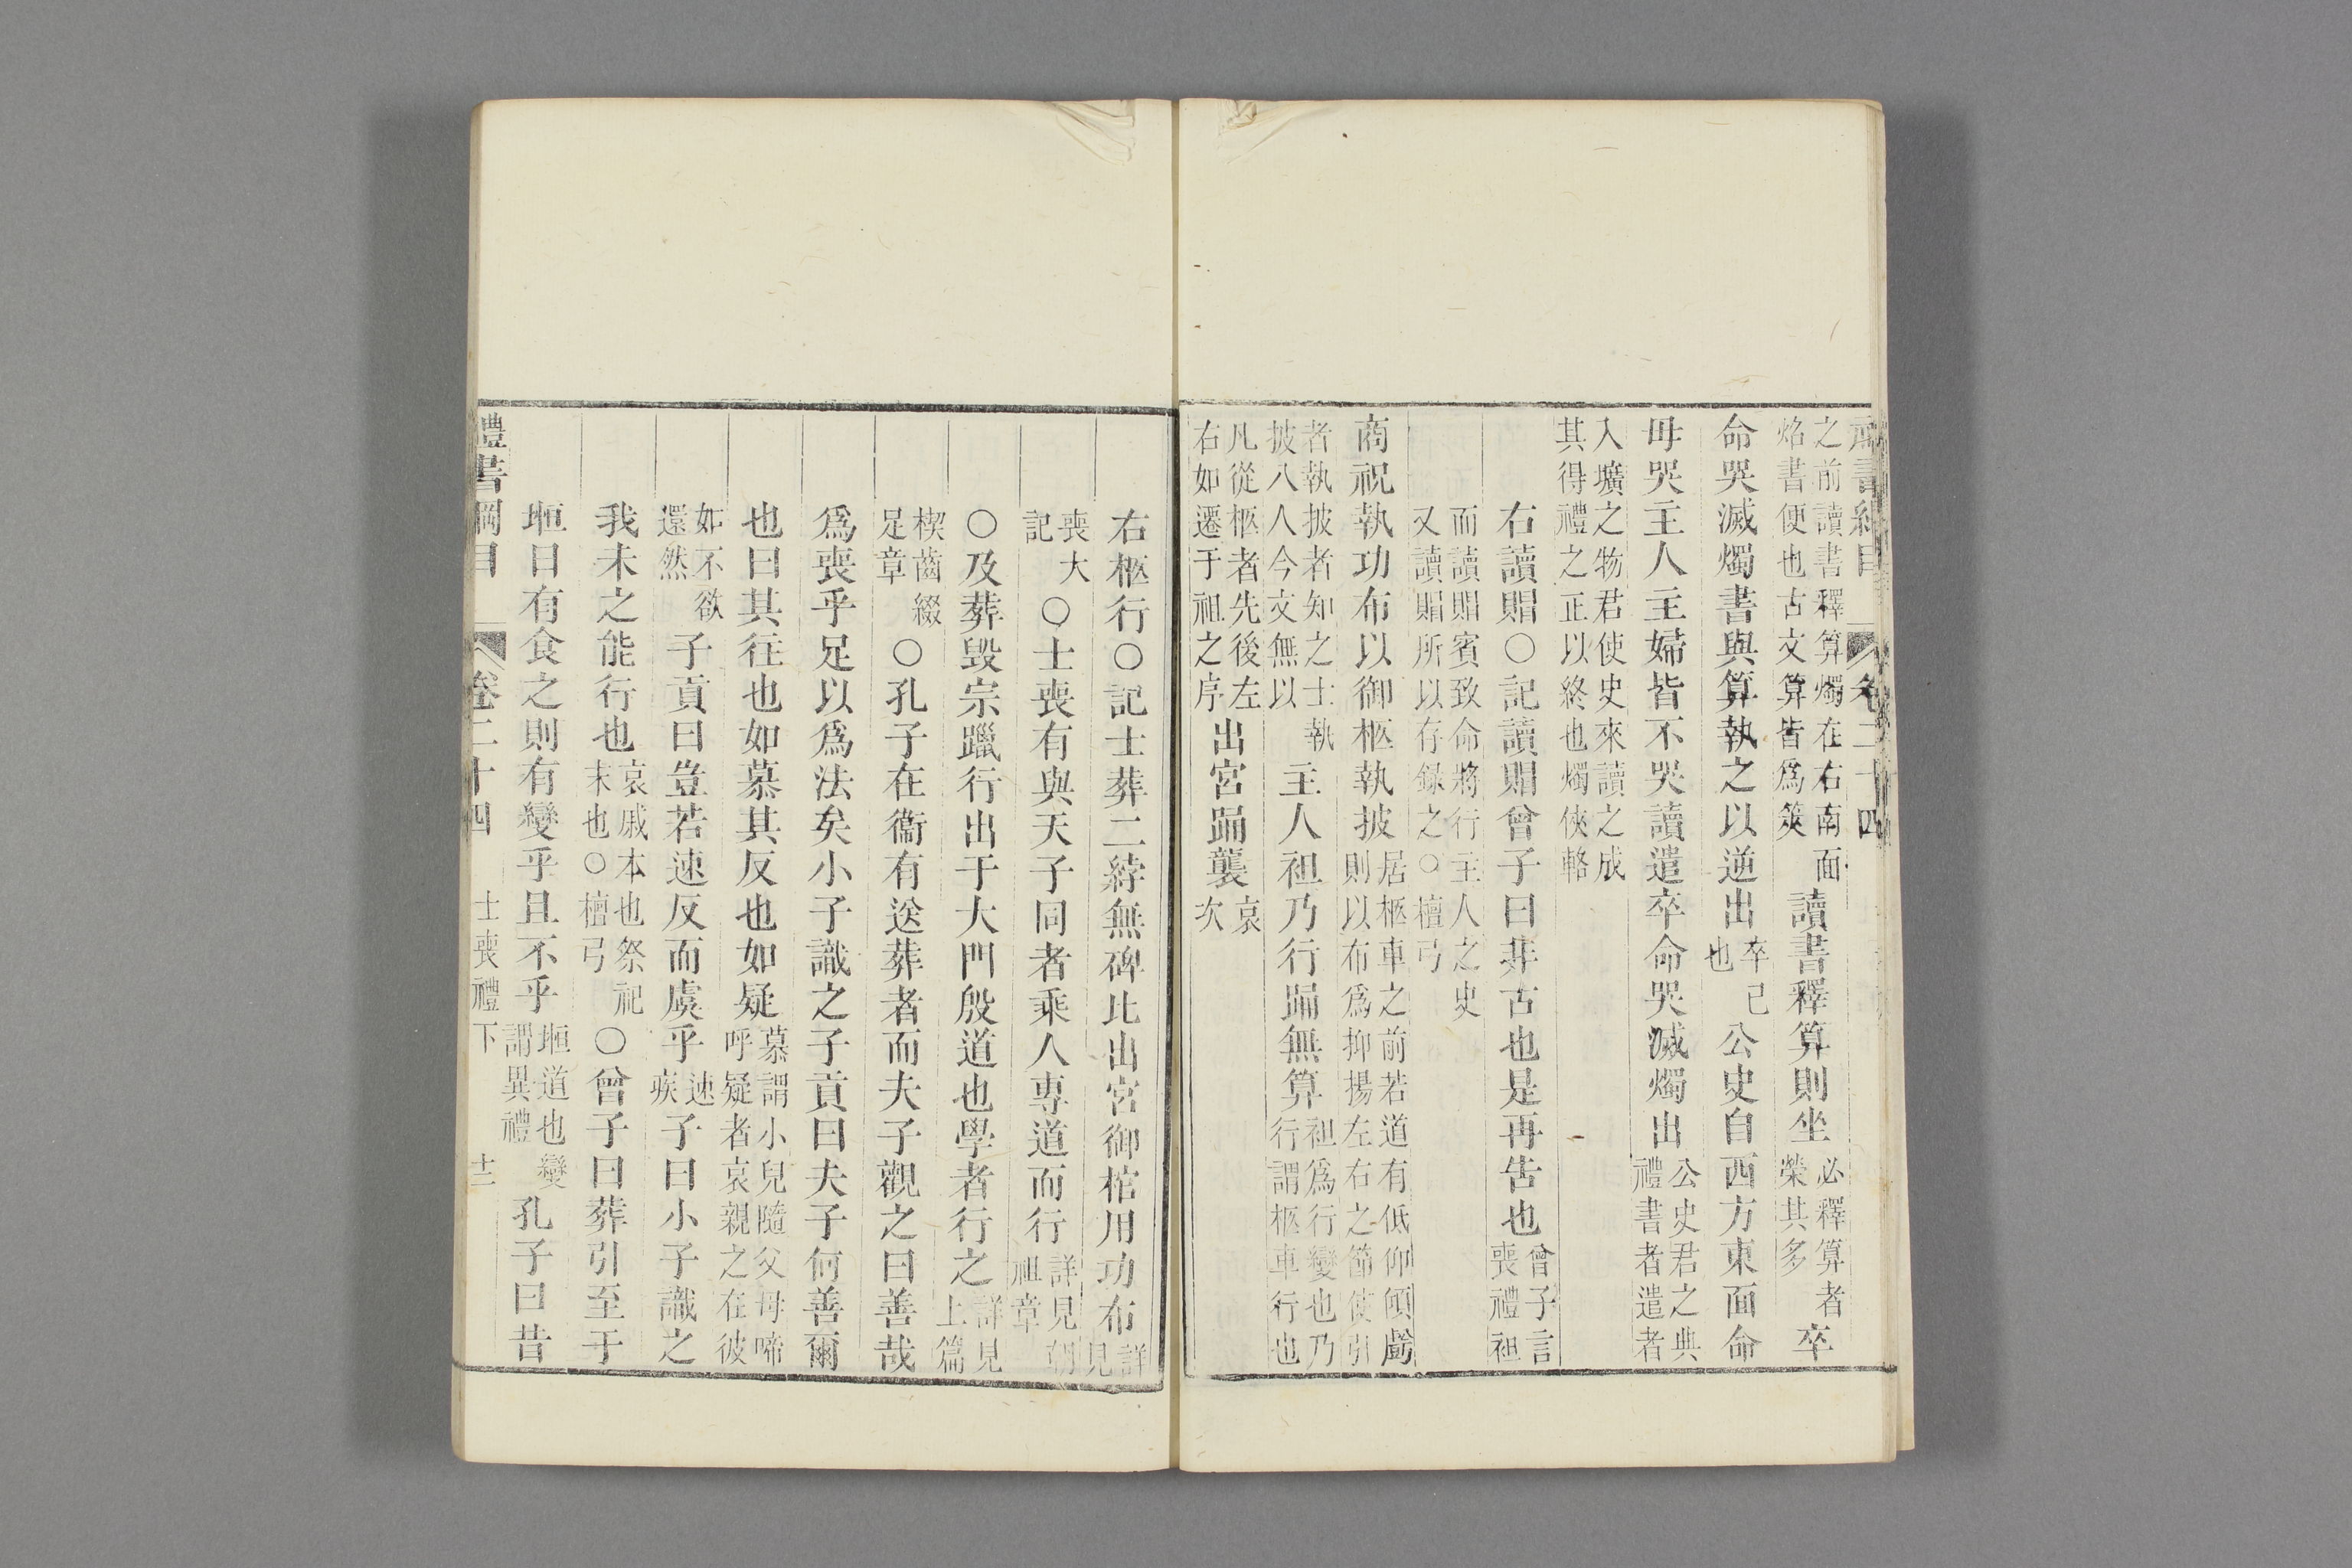 禮書綱目 卷二十四
之前讀書釋算燭在右南面焰書便也古文算皆爲筴讀書釋算則坐必釋算者榮其多卒
命哭滅燭書與算執之以逆出卒已也公史自西方東面命
毋哭主人主婦皆不哭讀遣卒命哭滅燭出公史君之典禮書者遣者
入壙之物君使史來讀之成其得禮之正以終也燭俠輅
右讀賵○記讀賵曾子曰非古也是再告也曾子言喪禮祖
而讀賵賓致命將行主人之史又讀賵所以存録之○檀弓
商祝執功布以御柩執披居柩車之前若道有低仰傾虧則以布爲抑揚左右之節使引
者執披者知之士執披八人今文無以主人袒乃行踊無算袒爲行變也乃行謂柩車行也
凡從柩者先後左右如遷于祖之序出宮踊襲哀次
右柩行○記士葬二綍無碑比出宮御棺用功布詳見
喪大記○士喪有與天子同者乘人專道而行詳見朝祖章
○及葬毀宗躐行出于大門殷道也學者行之詳見上篇
楔齒綴足章○孔子在衞有送葬者而夫子觀之曰善哉
爲喪乎足以爲法矣小子識之子貢曰夫子何善爾
也曰其往也如慕其反也如疑慕謂小兒隨父母啼呼疑者哀親之在彼
如不欲還然子貢曰豈若速反而虞乎速疾子曰小子識之
我未之能行也哀戚本也祭祀末也○檀弓○曾子曰葬引至于
堩日有食之則有變乎且不乎堩道也變謂異禮孔子曰昔
禮書綱目 卷二十四 士喪禮下 十三